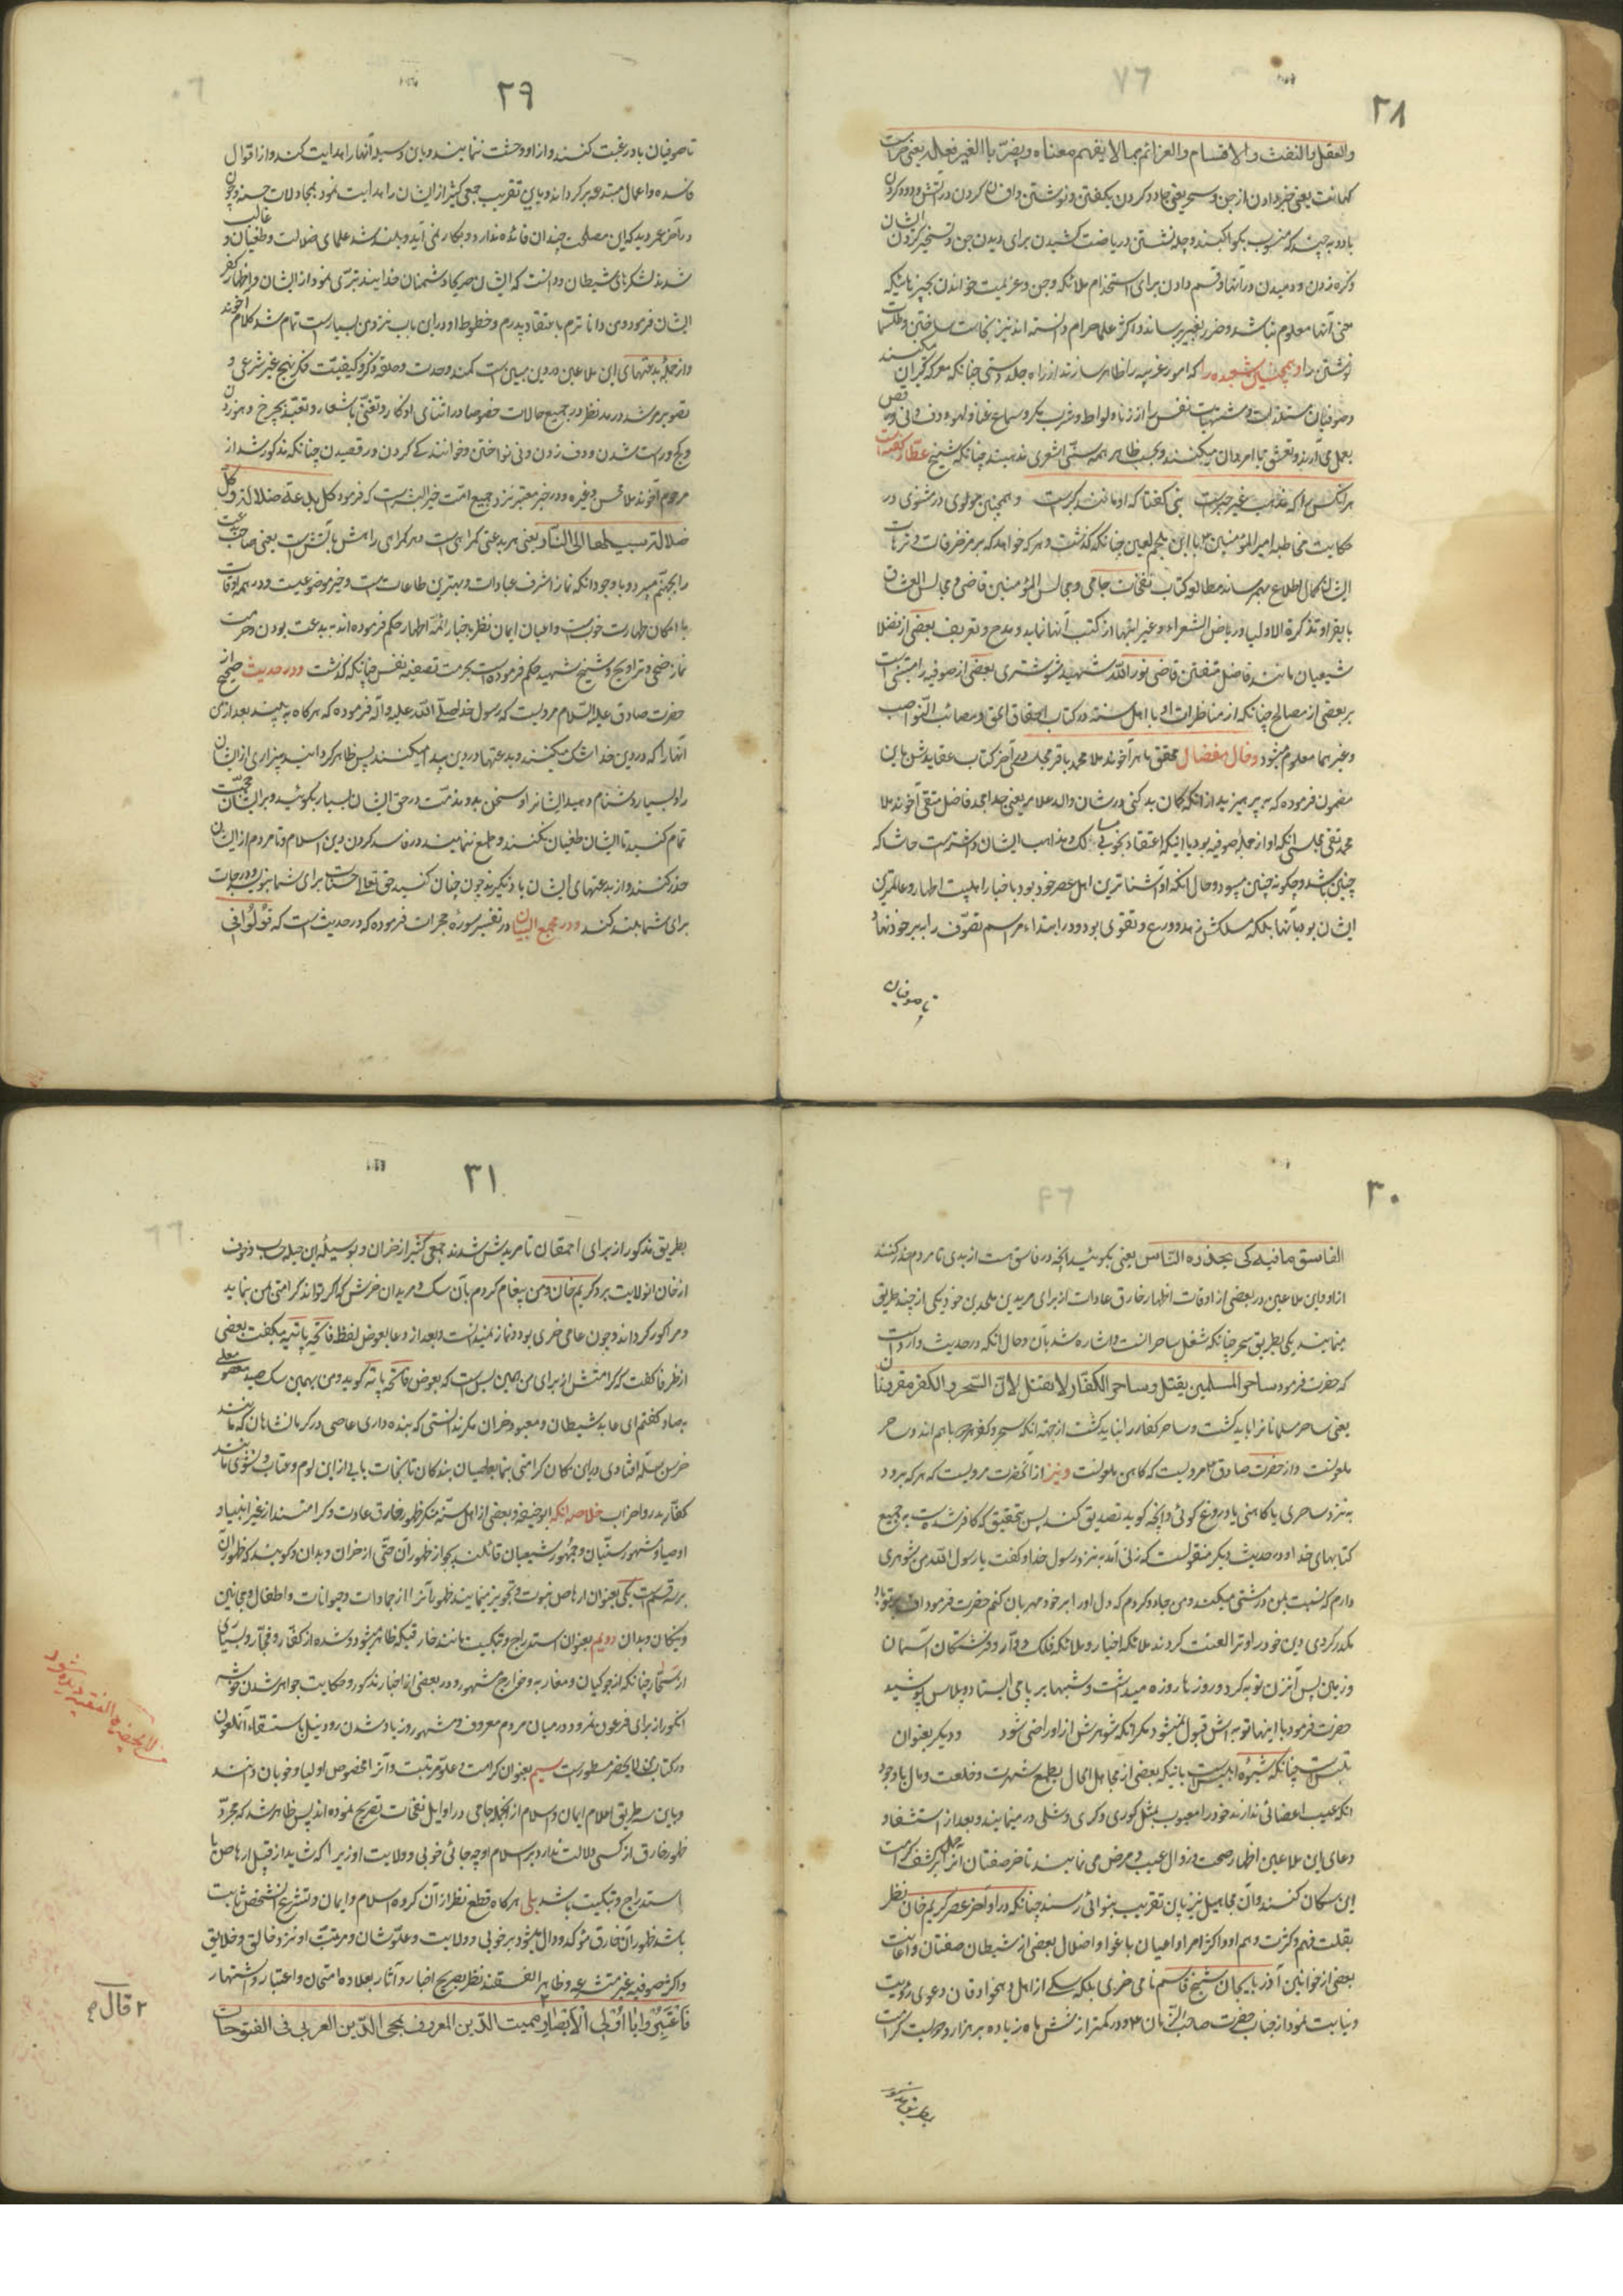 ۲۸
والعقل بالنفث والاقسام والعزائم بما لا یفهم معناه ویضرّ بالغیر فعاله یعنی حرامست
کهانت یعنی خبر دادن از جن وسحر یعنی جادو کردن بگفتن ونوشتن و کردن در آتش ودود کردن
یا دود به چیزی که منسوب بکواکبند وچله نشستن وریاضت کشیدن برای دیدن جن وتسخیر کردن ایشان
وکره زدن ودمیدن در آنها وقسم دادن برای استخدام ملائکه وجن وعزیمت خواندن بچیزهائیکه
معنی آنها معلوم نباشد وضرر بغیر برساند واکثر علما حرام دانسته اند نیز نجات ساختن وطلسمات
نوشتن را وهمچنین شعبده را که امور غریبه را ظاهر سازند از راه جلد دستی چنانکه معرکه گیران میکنند
وصوفیان مستلذات ومشتهیات نفس را از زنا ولواط وشرب بکر وسماع غنا ولهو ودف ونی ورقص
بعمل می آرند وتعشق با امردان میکنند وبحسب ظاهر همه سنّی اشعری مذهبند چنانکه شیخ عطار گفته است
هر انکس را که مذهب غیر جبر است نبی گفتا که او مانند گبر است وهمچنین مولوی در مثنوی در
حکایت مخاطبه امیر المؤمنین ع با ابن ملجم لعین چنانکه گذشت وهر که خواهد که بر مزخرفات وترهات
ایشان کمال اطلاع بهم رساند مطالعه کتاب نفحات جامی ومجالس المؤمنین قاضی ومجالس العشاق
بایقرا وتذکرة الاولیا وریاض الشعراء وغیر اینها از کتب آنها نماید ومدح وتعریف بعضی از فضلا
شیعیان مانند فاضل متفنن قاضی نور الله شهید شوشتری بعضی از صوفیه را مبتنی است
بر بعضی از مصالح چنانکه از مناظرات او با اهل سنة در کتاب احقاق الحق ومصائب النواصب
وغیرهما معلوم میشود وقال مفضال محقق ماهر آخوند ملا محمد باقر مجلسی در آخر کتاب عقایدش باین
مضمون فرموده که به پرهیزید از انکه گمان بد کنی در شان والد علامه یعنی جد امجد فاضل متقی آخوند ملا
محمد تقی مجلسی انکه او از جمله صوفیه بود یا اینکه اعتقاد بخوبی مسالک ومذاهب ایشان داشته است حاشا که
چنین باشد وچگونه چنین میبود وحال انکه او آشناترین اهل عصر خود بود باخبار اهلبیت اطهار وعالمترین
ایشان بود بآنها بلکه مسلکش زهد وورع وتقوی بود ودر ابتداء مراسم تصوّف را بر خود نهاد
تا صوفیان
۲۹
تا صوفیان باو رغبت کنند واز او وحشت ننمایند وباین وسیله آنها را هدایت کند واز اقوال
فاسده واعمال مبتدعه برگرداند وباین تقریب جمعی کثیر از ایشان را هدایت نمود بمجادلات حسنه وچون
در آخر عمر دید که این مصلحت چندان فائده ندارد وبکار نمی آید وبلند شد علمای ضلالت وطغیان وغالب
شدند لشکرهای شیطان ودانست که ایشان صریحا دشمنان خدایند تبرّی نمود از ایشان واظهار کفر
ایشان فرمود ومن داناترم باعتقاد پدرم وخطوط او در این باب نزد من بسیار است تمام شد کلام آخوند
واز جمله بدعتهای این ملاعین در دین مبین است کمند وحدت وحلقه ذکر وکیفیّت فکر بنهج غیر شرعی و
تصویر مرشد در مدّ نظر در جمیع حالات خصوصا در اثنای اذکار وتغنّی باشعار وتعبّد بچرخ زدن
وکج وراست شدن ودف زدن ونی نواختن وخوانندگی کردن ورقصیدن چنانکه مذکور شد از
مرحوم آخوند ملا محسن وغیره ودر خبر معتبر نزد جمیع امّت خیر البشر است که فرمود کل بدعة ضلالة وکلّ
ضلالة سبیلها الی النار یعنی هر بدعتی گمراهی است وهر گمراهی راهش بآتش است یعنی صاحب بدعت
را بجهنم میبرد وبا وجود انکه نماز اشرف عبادات وبهترین طاعات است وخیر موضوعیست ودر همه اوقات
با امکان طهارت خوبست واعیان ایمان نظر باخبار ائمّه اطهار حکم فرموده اند به بدعت بودن وحرمت
نماز ضحی وتراویح وشیخ شهید حکم فرموده است بحرمت تصفیه نفس چنانکه گذشت ودر حدیث صحیح از
حضرت صادق علیه السّلام مرویست که رسول خدا صلّی الله علیه وآله فرموده که هرگاه به بینید بعد از من
آنها را که در دین خدا شک میکنند وبدعتها در دین پیدا میکنند پس ظاهر گردانید بیزاری از ایشان
را وبسیار دشنام دهید ایشانرا وسخن بد ومذمّت در حق ایشان بسیار بگوئید وبر ایشان حجّت
تمام کنید تا ایشان طغیان نکنند وطمع ننمایند در فاسد کردن دین اسلام وتا مردم از ایشان
حذر کنند واز بدعتهای ایشان یاد نگیرند چون چنان کنید حق تعالی حسنات برای شما بنویسد ودرجات
برای شما بلند کند ودر مجمع البیان در تفسیر سوره حجرات فرموده که در حدیث است که قولوا فی
۳۰
الفاسق ما فیه کی یحذره النّاس یعنی بگوئید انچه در فاسق هست از بدی تا مردم حذر کنند
از او واین ملاعین در بعضی از اوقات اظهار خارق عادات از برای مریدین ملحدین خود یکی از چند طریق
مینمایند یکی بطریق سحر چنانکه شغل ساحرانست واشاره شد بآن وحال انکه در حدیث وارد است
که حضرت فرمود ساحر المسلمین یقتل وساحر الکفّار لا یقتل لانّ السّحر والکفر مقرونان
یعنی ساحر مسلمانانرا باید کشت وساحر کفار را نباید کشت از جهة انکه سحر وکفر هر دو باهم اند وساحر
ملعونست واز حضرت صادق ع مرویست که کاهن ملعونست ونیز از آنحضرت مرویست که هر که برود
به نزد ساحری یا کاهنی یا دروغ گوئی وآنچه گوید تصدیق کند پس بتحقیق که کافر شده است به جمیع
کتابهای خدا ودر حدیث دیگر منقولست که زنی آمد به نزد رسول خدا وگفت یا رسول الله من شوهری
دارم که نسبت بمن درشتی میکند ومن جادو کردم که دل او را بر خود مهربان کنم حضرت فرمود اف بر تو باد
مکدر کردی دین خود را وترا لعنت کردند ملائکه اخیار وملائکه فلک دوّار وفرشتگان آسمان
وزمین پس آنزن توبه کرد وروزها روزه میداشت وشبها بر پا می ایستاد وپلاس پوشید
حضرت فرمود با اینها توبه اش قبول نمیشود مگر انکه شوهرش از او راضی شود ودیگر بعنوان
تلبیس است چنانکه شیوه ابلیس است بانیکه بعضی از مجاهیل الحال بطمع شهرت وخلعت ومال با وجود
انکه عیب اعضائی ندارند خود را معیوب بمثل کوری وکری وشلی در مینمایند وبعد از استشفا و
دعای این ملاعین اظهار صحت وزوال عیب ومرض می نمایند تا خرصفتان انرا حمل بر کشف وکرامت
این سگان کنند وآن مجاهیل نیز باین تقریب بنوائی رسند چنانکه در اواخر عصر کریم خان نظر
بقلت فهم وکثرت وهم او واکثر امرا واعیان باغوا واضلال بعضی از شیطان صفتان واعانت
بعضی از خوانین آذربایجان شیخ قاسم نامی خری بلکه سگی از اهل دهخوارقان دعوی رؤیت
ونیابت نمود از جناب حضرت صاحب الزّمان ع ودر کمتر از شش ماه زیاده بر هزار وحولیست کرامت
بطریق مذکور
۳۱
بطریق مذکور از برای احمقان تا مریدش شدند جمعی کثیر از خران وبوسیله این حیله حسب وخوف
از خان انولایت برد کریم خان ومن پیغام کردم بآن سگ ومریدان خرش که اگر تواند کرامتی بمن بنماید
ومرا کور گرداند وچون عامی خری بود ونماز نمیدانست وبعد از دعا بعوض لفظ فاتحه پاتیه میگفت بعضی
از ظرفا گفت که کرامتش از برای من همین بس است که بعوض فاتحه پاته گوید ومن بهمین سگ صید معصوم معلی
بصاد گفتم ای عابد شیطان ومعبود خران مگر ندانستی که بنده داری عاصی در کرمانشاهان که مانند
خرس بتله افتادی وباین مکان کرامتی بنما بعاصیان بندگان تا نجات یابی از این لوم وعتاب ونشوی مانند
کفّار بدر واحزاب خلاصه انکه ابو حنیفه وبعضی از اهل سنّة منکر ظهور خارق عادت وکرامتند از غیر انبیاء و
اوصیا ومشهور سنّیان وجمهور شیعیان قائلند بجواز ظهور آن حتّی از خران وبدان وگویند که ظهور آن
بر سه قسم است یکی بعنوان ارهاص نبوت وتجویز مینمایند ظهور آنرا از جمادات وحیوانات واطفال ومجانین
ونیکان وبدان دویم بعنوان استدراج وتبکیت مانند خارقیکه ظاهر میشود وشده از کفّار وفجّار وبسیاری
از سحّار چنانکه از جوکیان ومغاربه وخوارج مشهور ودر بعضی از اخبار مذکور وحکایت جواهر شدن خوشه
انگور از برای فرعون نمرود در میان مردم معروف ومشهور وزیاد شدن رود نیل باستسقاء آنملعون
در کتاب من لا یحضر مسطور است سیم بعنوان کرامت وعلوّ مرتبت وآنرا مخصوص اولیا وخوبان دانند
وباین سه طریق اعلام ایمان واسلام از انجمله جامی در اوایل نفحات تصریح نموده اند پس ظاهر شد که مجرّد
ظهور خارق از کسی دلالت ندارد بر اسلام او چه جائی خوبی وولایت او زیرا که شاید از قبیل ارهاص یا
استدراج وتبکیت باشد بلی هرگاه قطع نظر از آن کرده اسلام وایمان وتشرع آنشخص ثابت
باشد ظهور آن خارق مؤکد ودال میشود بر خوبی وولایت وعلوّ شان ومرتبت او نزد خالق وخلایق
واکثر صوفیه غیر متشرع وظاهر الفسقند نظر بصریح اخبار وآثار بعلاوه امتحان واعتبار واشتهار
فَاعْتَبِرُوا یٰا اُولِی الْاَبْصٰارِ ممیت الدّین المعروف بمحی الدّین العربی فی الفتوحات
من لا یحضره الفقیه دیده شود
۲ قال م